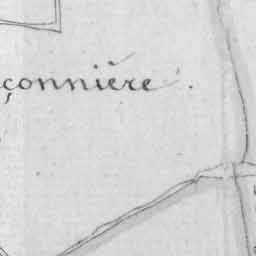 çonnière.